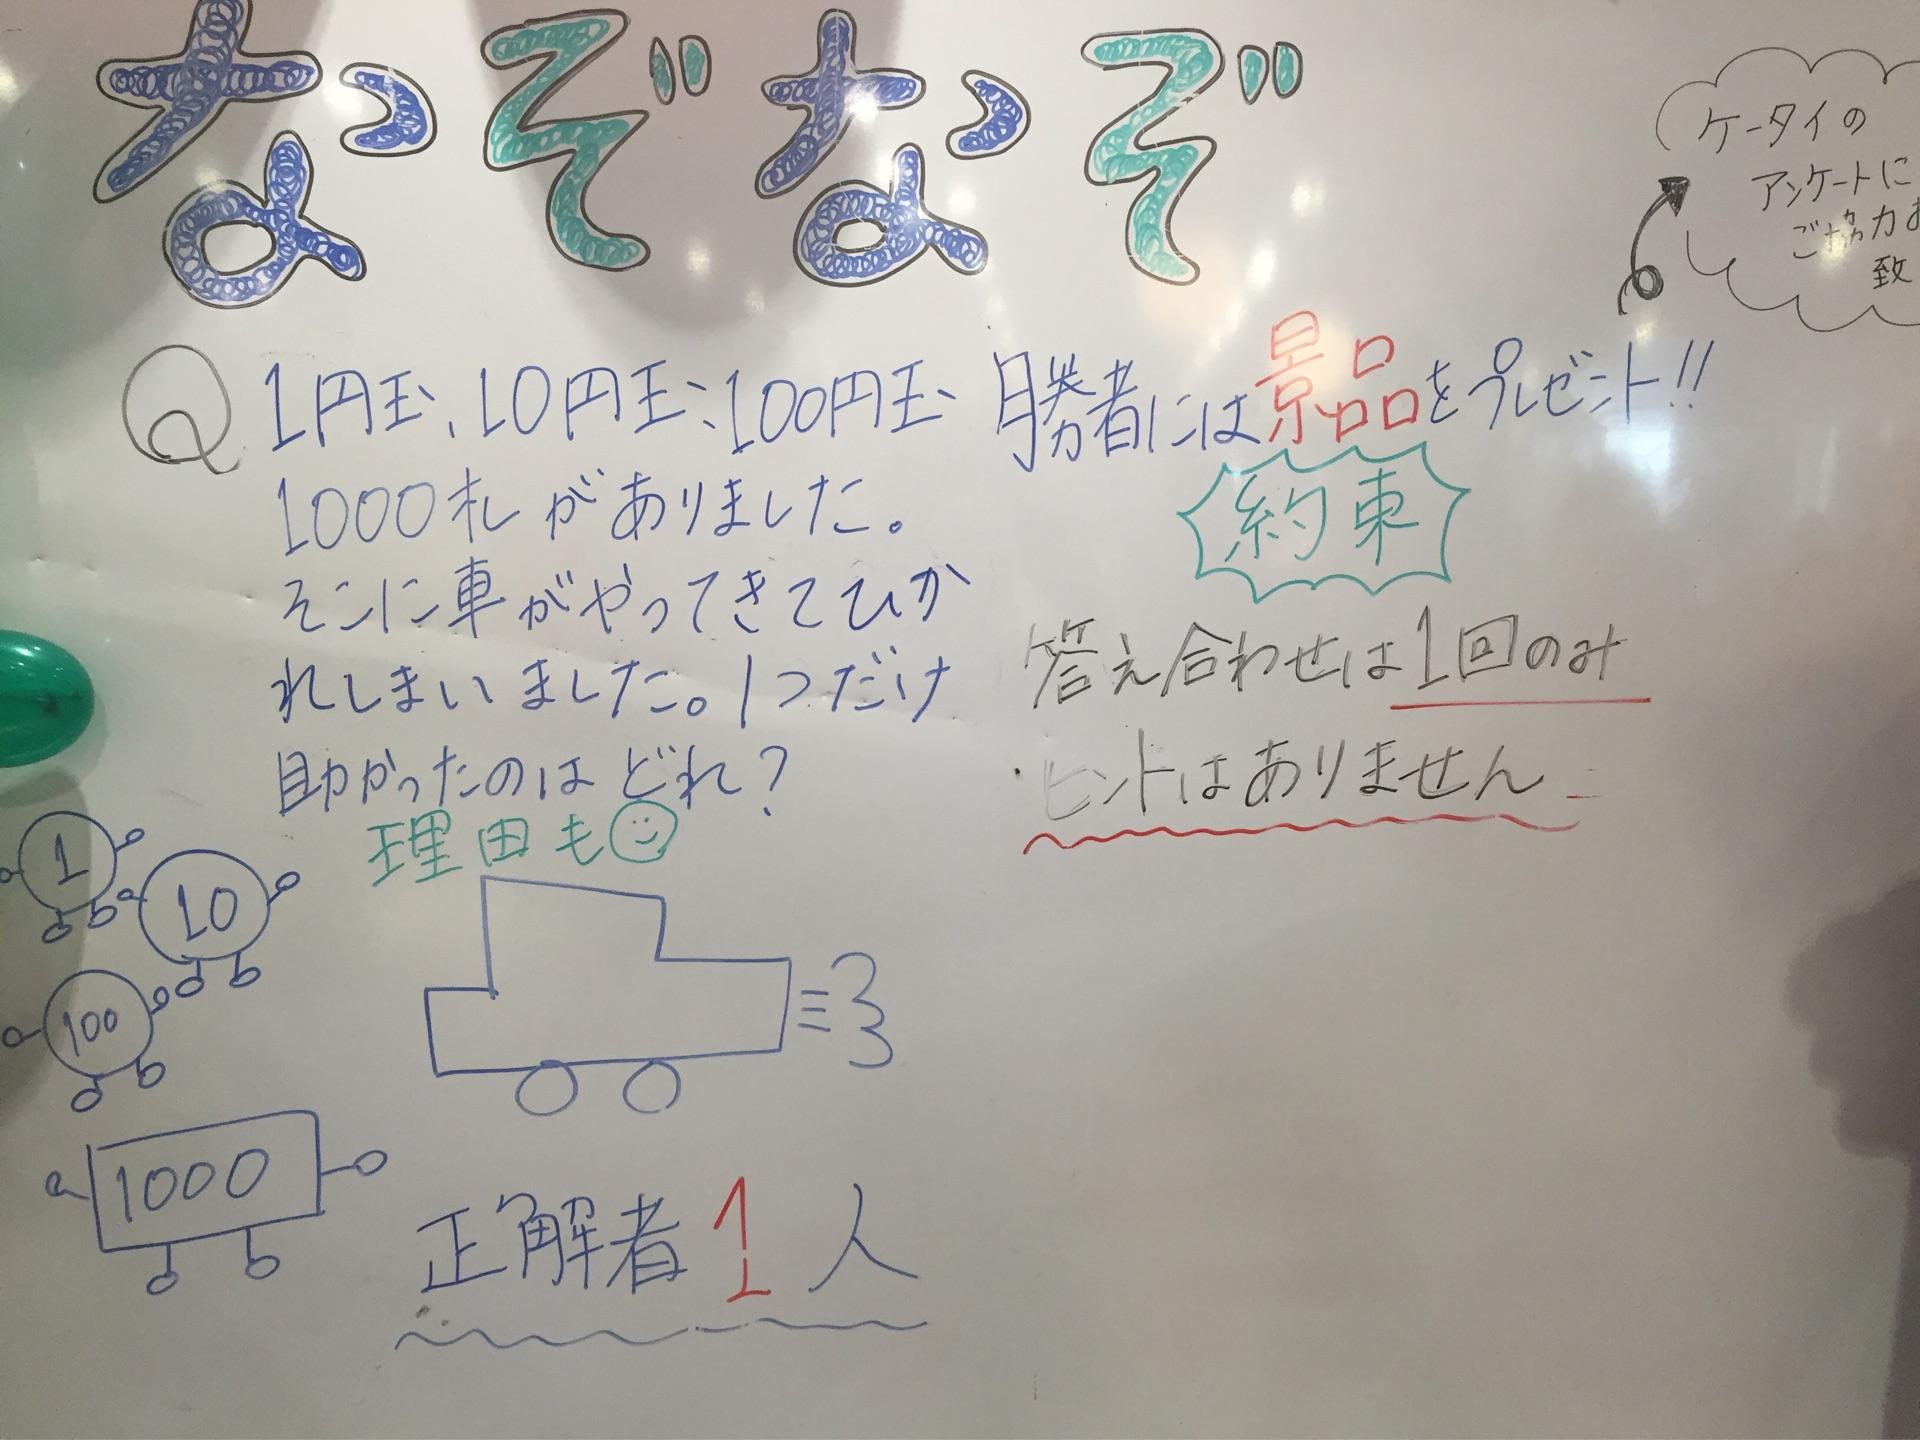 なぞなぞ
ケータイの
アンケートに
ご協力お
カ
致
Q 1円玉、10円玉、100円玉
1000札がありました。
そこに車がやってきてひか
れしまいました。1つだけ
助かったのはどれ?
理由も
勝者には景品をプレゼント!!
約束
答え合わせは1回のみ
・ヒントはありません
1
10
100
1000
正解者1人